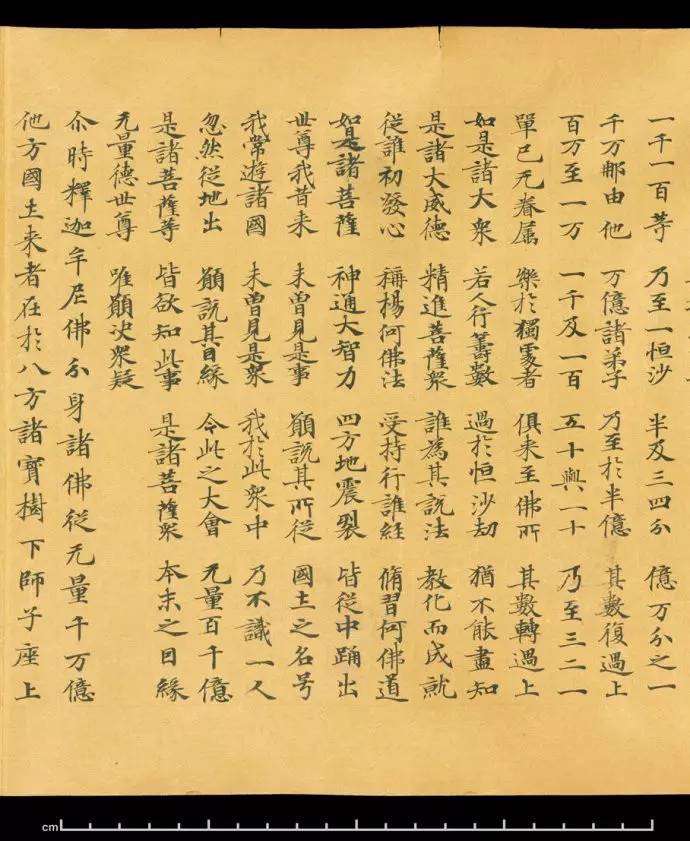 一千一百等 乃至一恒沙 半及三四分 億万分之一
千万那由他 万億諸弟子 乃至於半億 其數復過上
百万至一万 一千及一百 五十與一十 乃至三二一
單己无眷属 樂於獨處者 俱来至佛所 其數轉過上
如是諸大衆 若人行籌數 過於恒沙劫 猶不能盡知
是諸大威德 精進菩薩衆 誰為其說法 教化而成就
従誰初發心 稱楊何佛法 受持行誰經 脩習何佛道
如是諸菩薩 神通大智力 四方地震裂 皆従中踊出
世尊我昔来 未曽見是事 願說其所従 國土之名号
我常遊諸國 未曽見是衆 我於此衆中 乃不識一人
忽然従地出 願說其因緣 今此之大會 无量百千億
是諸菩薩等 皆欲知此事 是諸菩薩衆 本末之因緣
无量德世尊 唯願決衆疑
尒時釋迦牟尼佛分身諸佛従无量千万億
他方國土来者在於八方諸寶樹下師子座上
cm